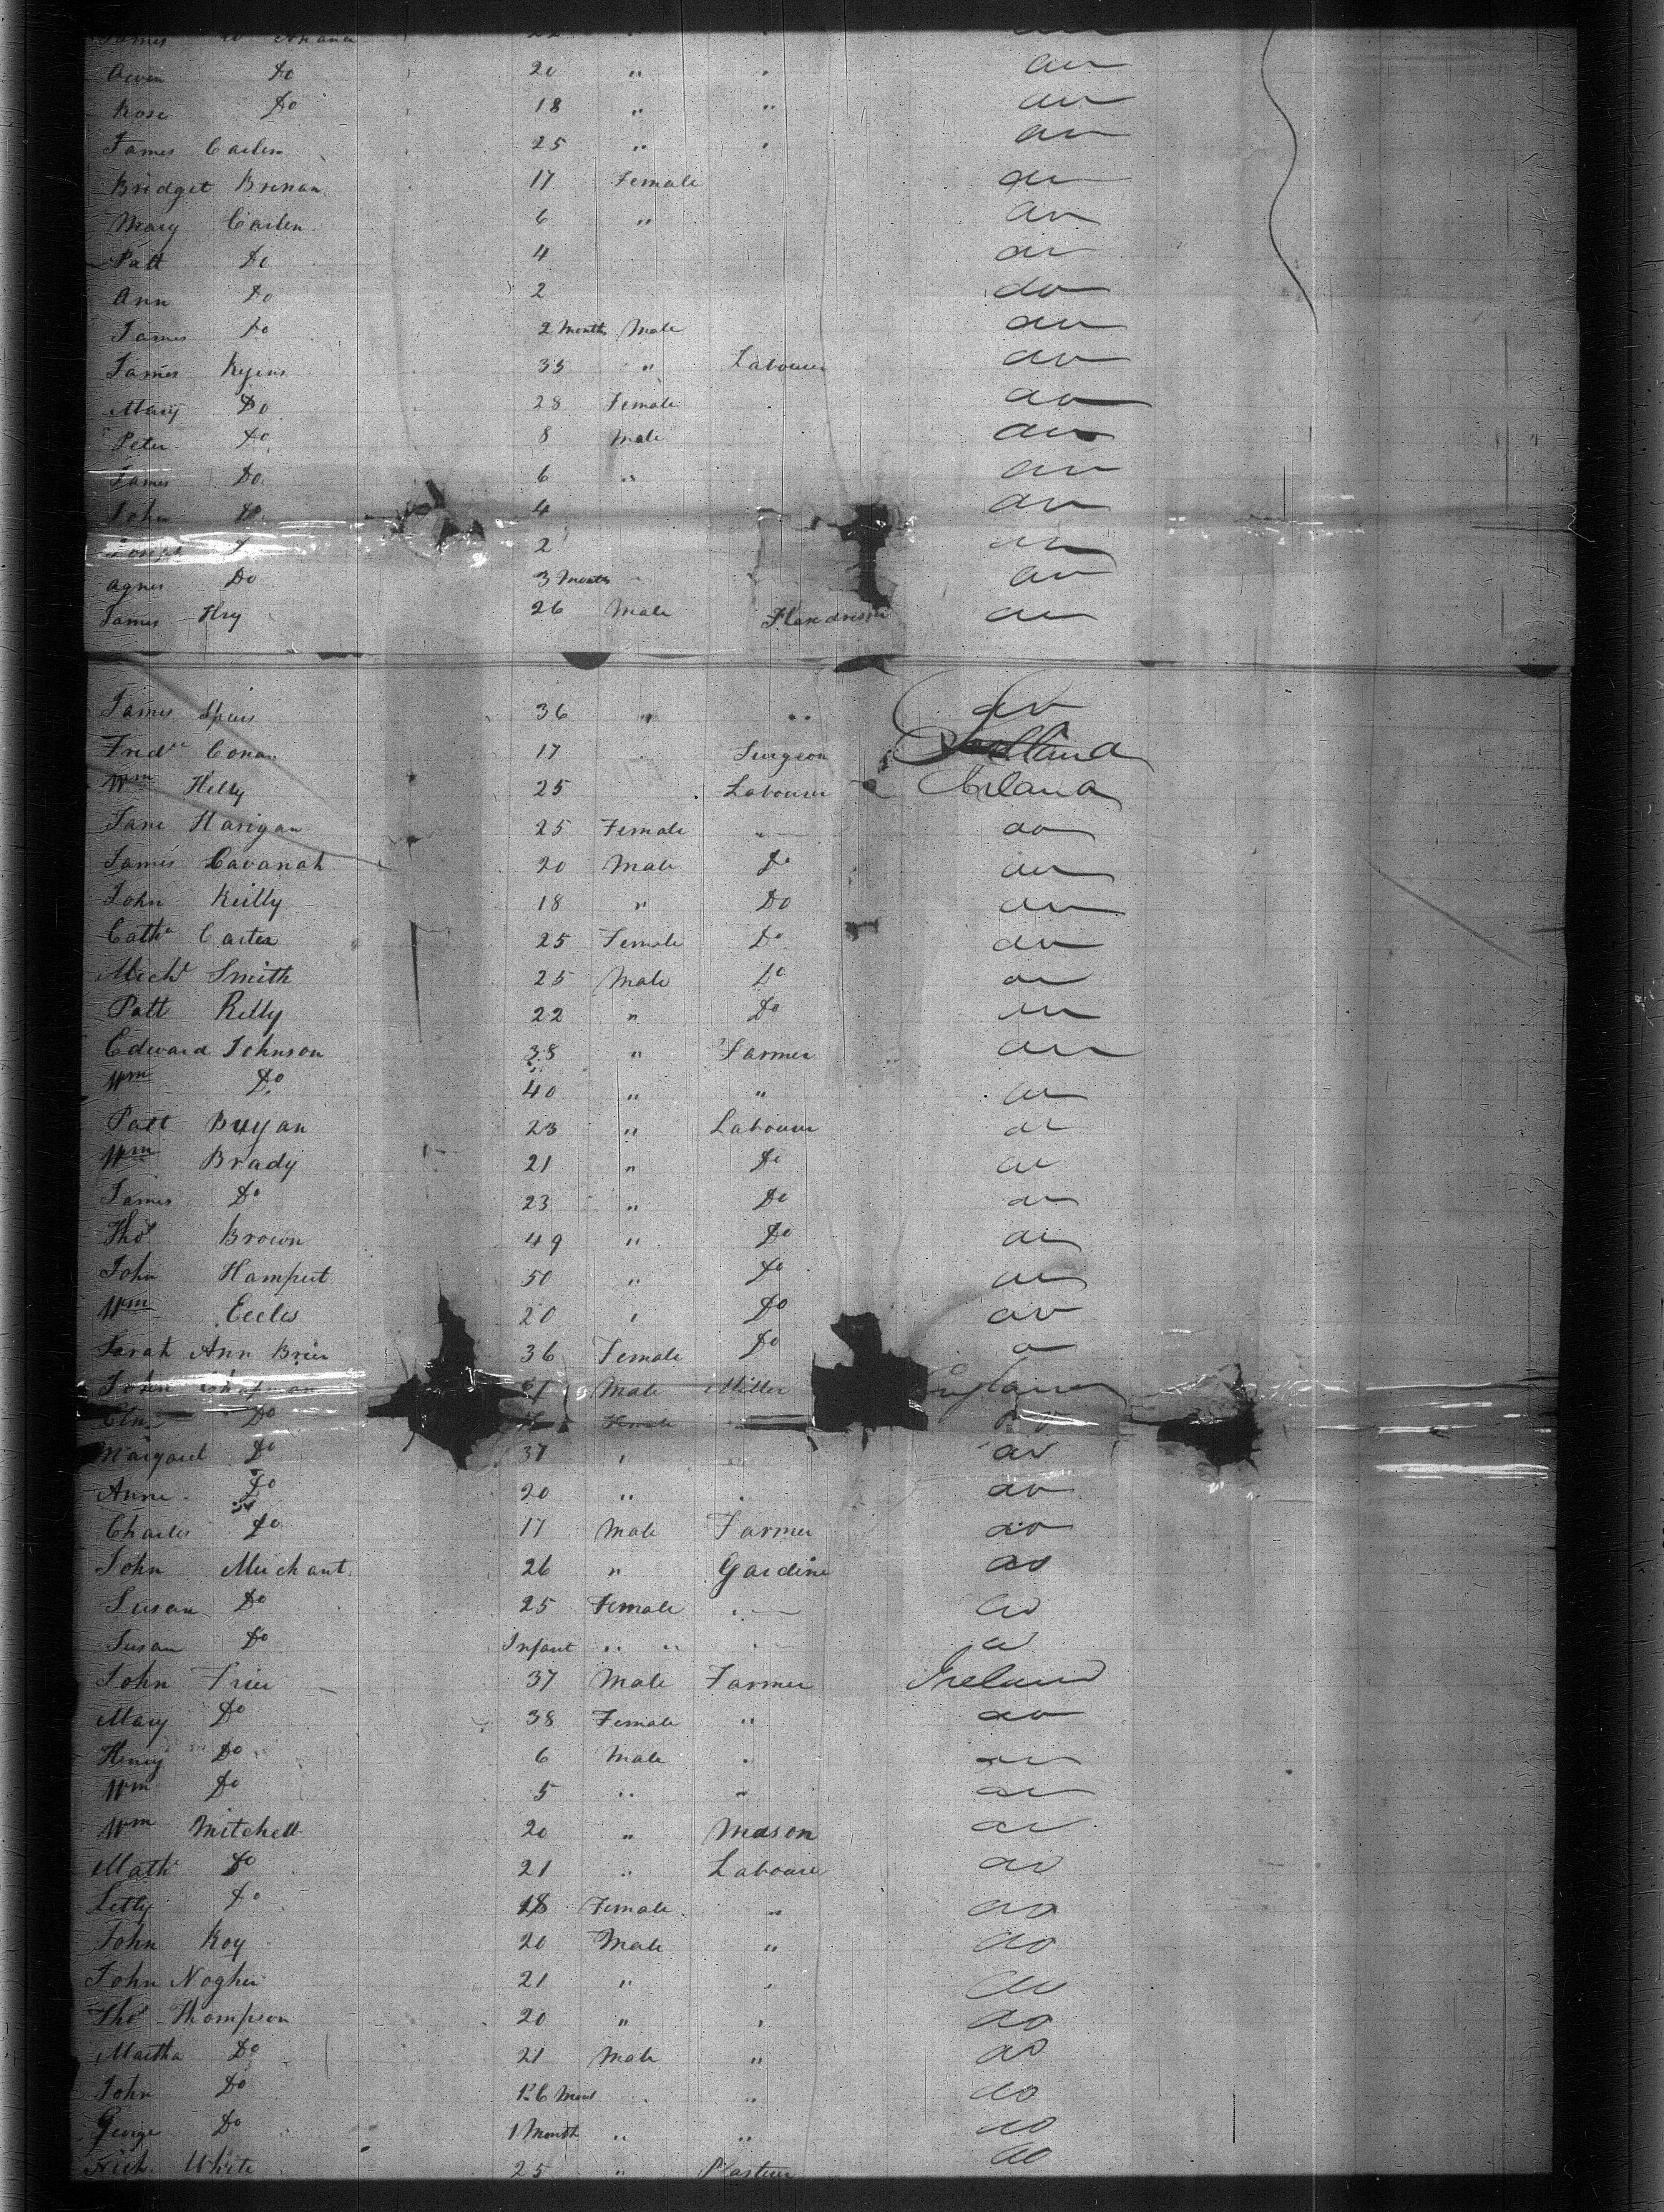 James
Owen Do 20 " " do
Rose Do 18 " " do
James Carlen 25 " " do
Bridget Brenan 17 Female do
Mary Carlen 6 " do
Patt Do 4 do
Ann Do 2 do
James Do 2 Months Male do
James 33 " Labourer do
Mary Do 28 Female do
Peter Do 8 Male do
James Do 6 " do
John Do 4 do
Joseph Do 2 do
Agnes Do 3 Months do
James 26 Male Flax dresser do
James Speirs 36 " " do
Fredk Conan 17 Surgeon
Wm Kelly 25 Labourer Ireland
Jane Harigan 25 Female " do
James Cavanah 20 Male Do do
John Reilly 18 " Do do
Cathn Carter 25 Female Do do
Michl Smith 25 Male Do do
Patt Relly 22 " Do do
Edward Johnson 38 " Farmer do
Wm Do 40 " " do
Patt 23 " Labourer do
Wm Brady 21 " Do do
James Do 23 " Do do
Thos Brown 49 " Do do
John 50 " Do do
Wm Eccles 20 " Do do
Sarah Ann Brier 36 Female Do do
John Chapman Male Miller England
Do Female do
Margaret Do 37 " do
Anne Do 20 " do
Charles Do 17 Male Farmer do
John Merchant 26 " Gardine do
Susan Do 25 Female do
Susan Do Infant " " do
John Frier 37 Male Farmer Ireland
Mary Do 38 Female " do
Henry Do 6 Male do
Wm Do 5 " " do
Wm Mitchell 20 " Mason do
Mathw Do 21 " Labourer do
Letty Do 18 Female " do
John Roy 20 Male " do
John Nogher 21 " " do
Thos Thompson 20 " " do
Martha Do 21 Male " do
John Do " do
George Do 1 Month " " do
Rich. White 25 " Plasterer do